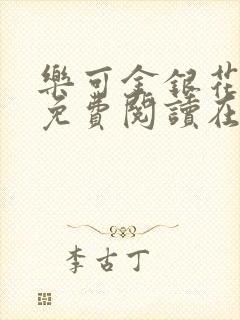 樂可金銀花
免費閱讀在
李古丁